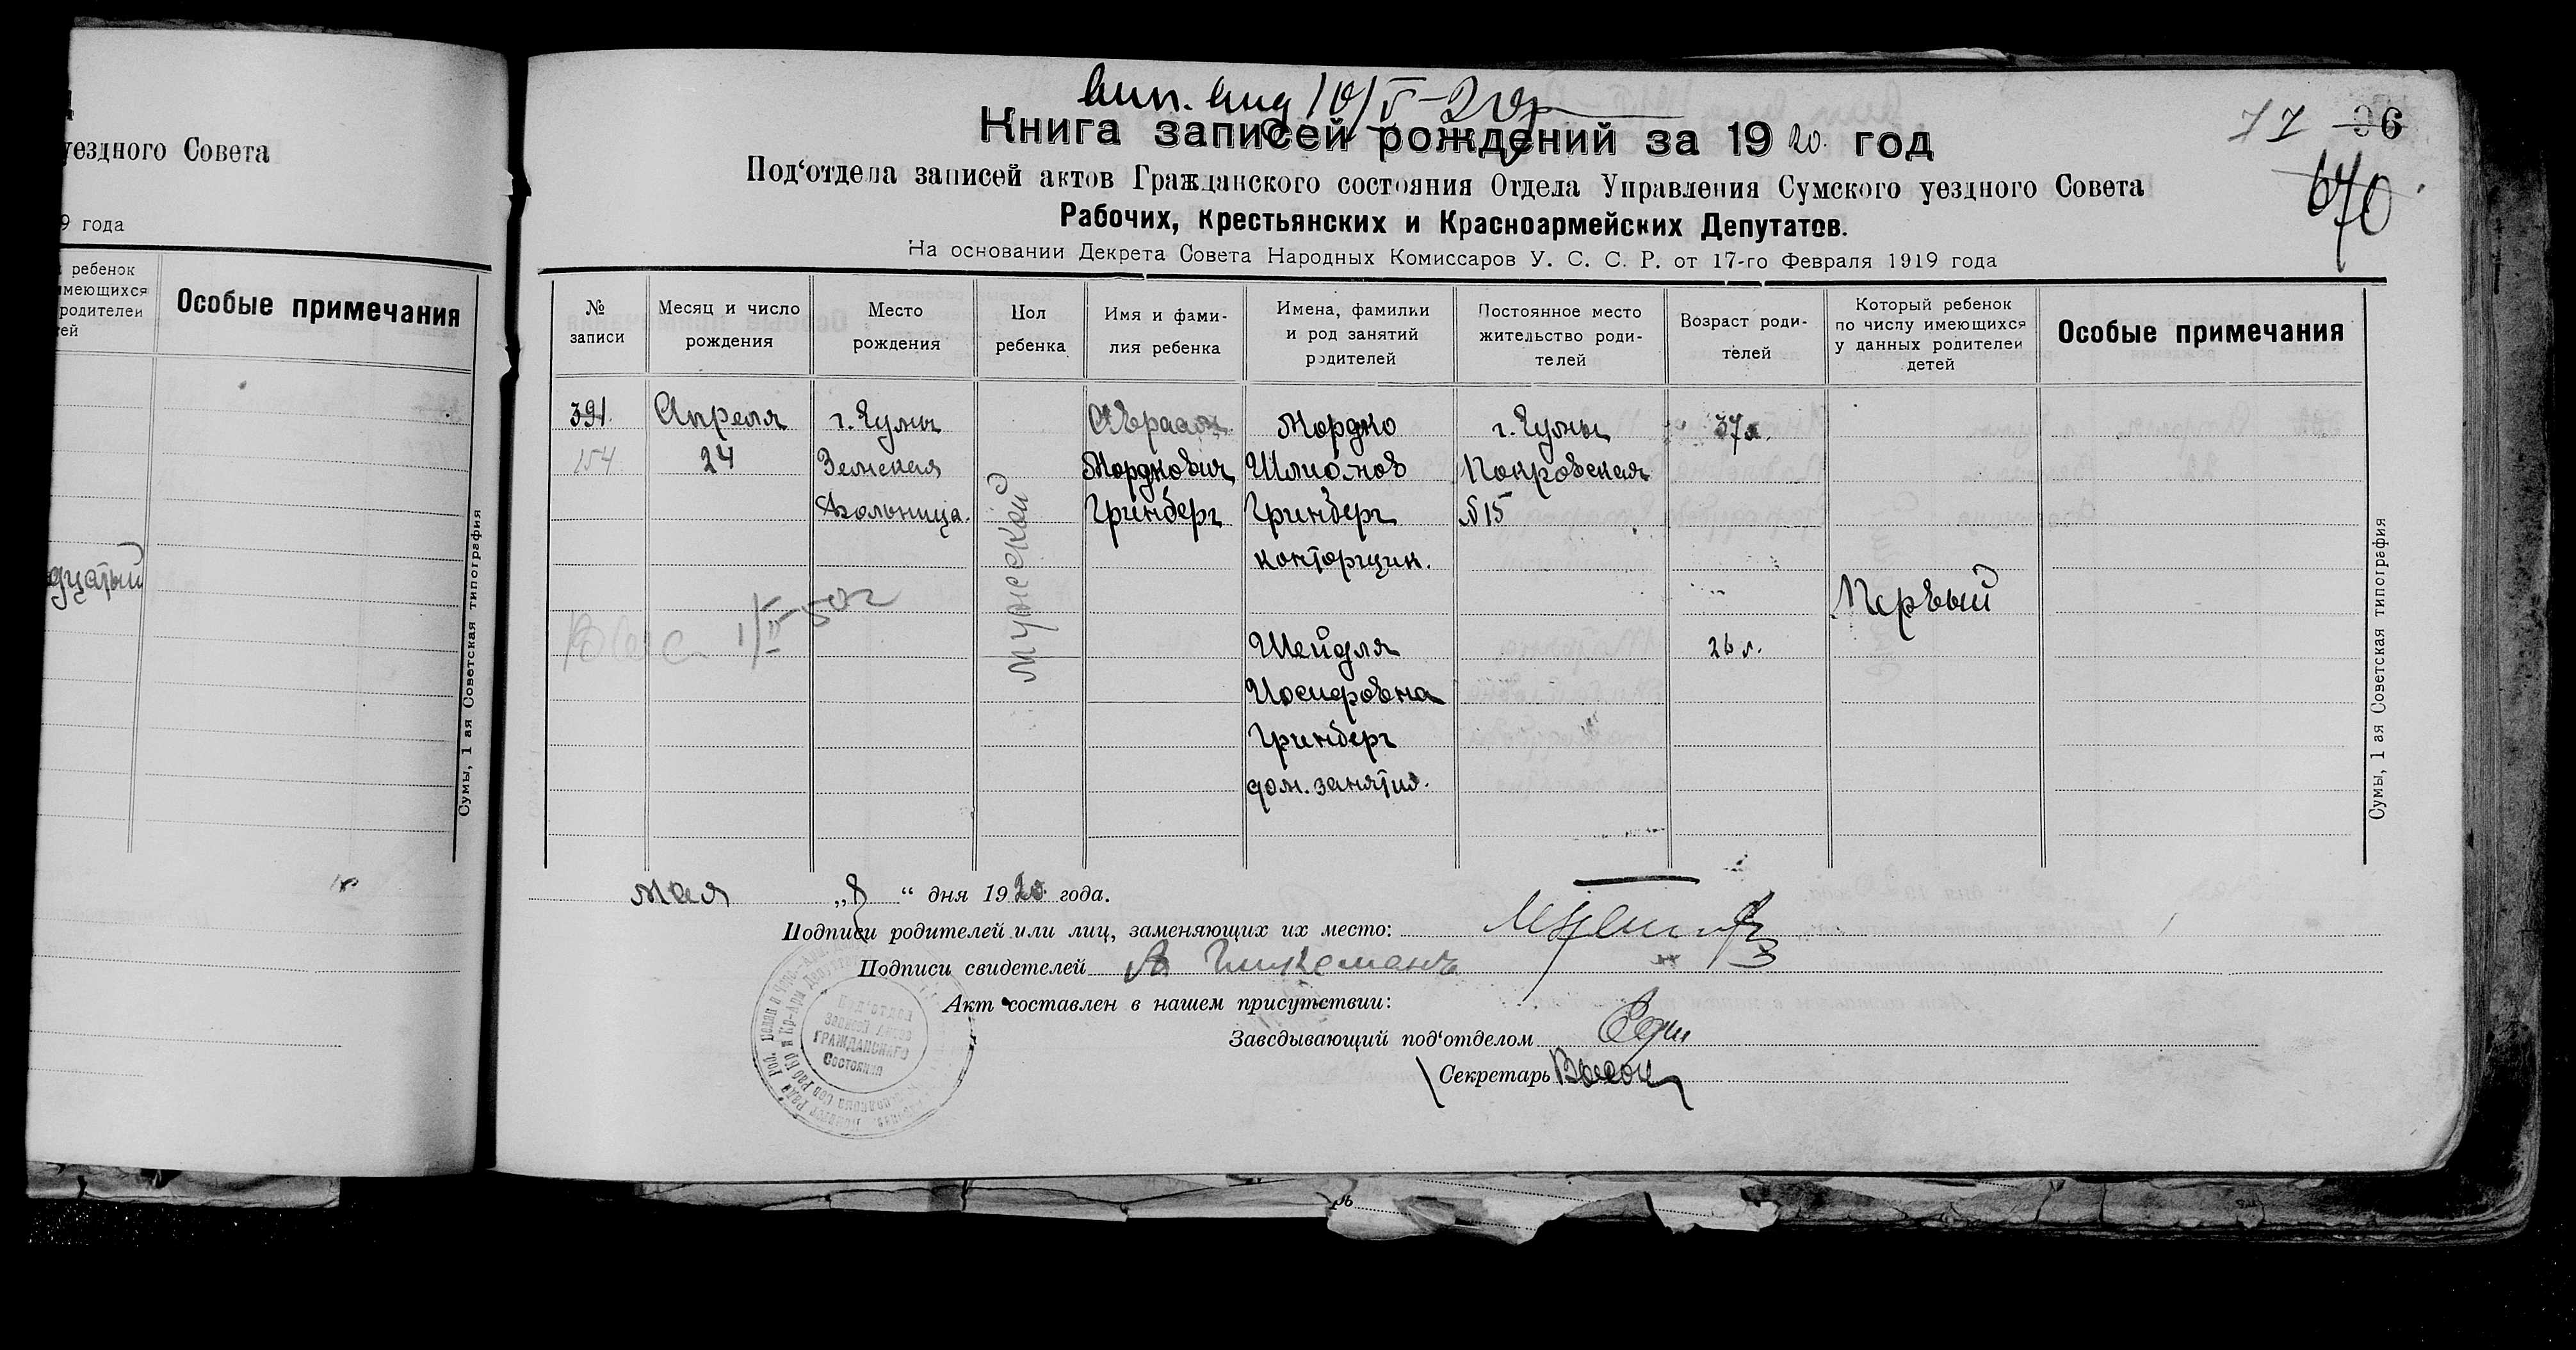 уездного Совета
9 года
ребенок
имеющихся
родителей
тей
Особые примечания
дцатый
Сумы, 1 ая Советская типография
77 36
670
Книга записей рождений за 1920. год
Под‘отдела записей актов Гражданского состояния Отдела Управления Сумского уездного Совета
Рабочих, Крестьянских и Красноармейских Депутатов.
На основании Декрета Совета Народных Комиссаров У. С. С. Р. от 17-го Февраля 1919 года
№ записи
Месяц и число рождения
Место рождения
Пол ребенка
Имя и фами-
лия ребенка
Имена, фамилии
и род занятий
родителей
Постоянное место
жительство роди-
телей
Возраст роди-
телей
Который ребенок
по числу имеющихся
у данных родителей
детей
Особые примечания
391. Апреля г. Сумы Абраам Мордко г. Сумы 37 л.
154 24 Земская Мордкович Шлиомов Покровская
больница. Гринберг Гринберг №15
конторщик.
Мужской
Первый
Шейдля 26 л.
Иосифовна
Гринберг
дом. занятия.
Сумы, 1 ая Советская типография
мая „8“ дня 1920 года.
Подписи родителей или лиц, заменяющих их место:
Подписи свидетелей
Акт составлен в нашем присутствии:
Заведывающий под‘отделом
Секретарь
Под'отдел
Записей Актов
ГРАЖДАНСКАГО
Состояния